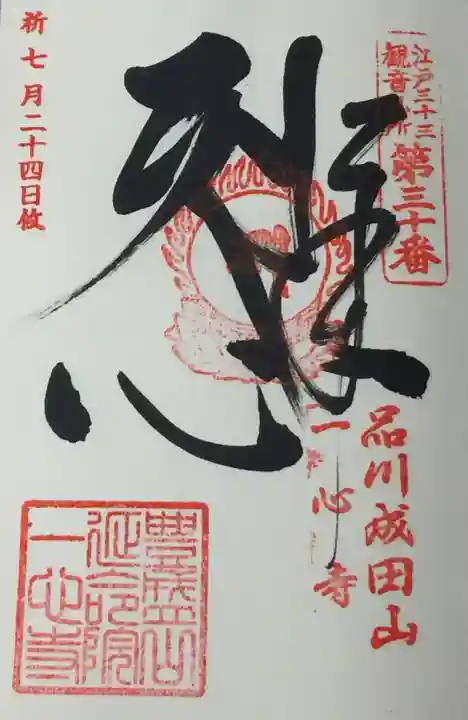 江戸三十三
観音札所
第三十番
品川成田山
一心寺
祈七月二十四日攸
豊盛山
延命院
一心寺